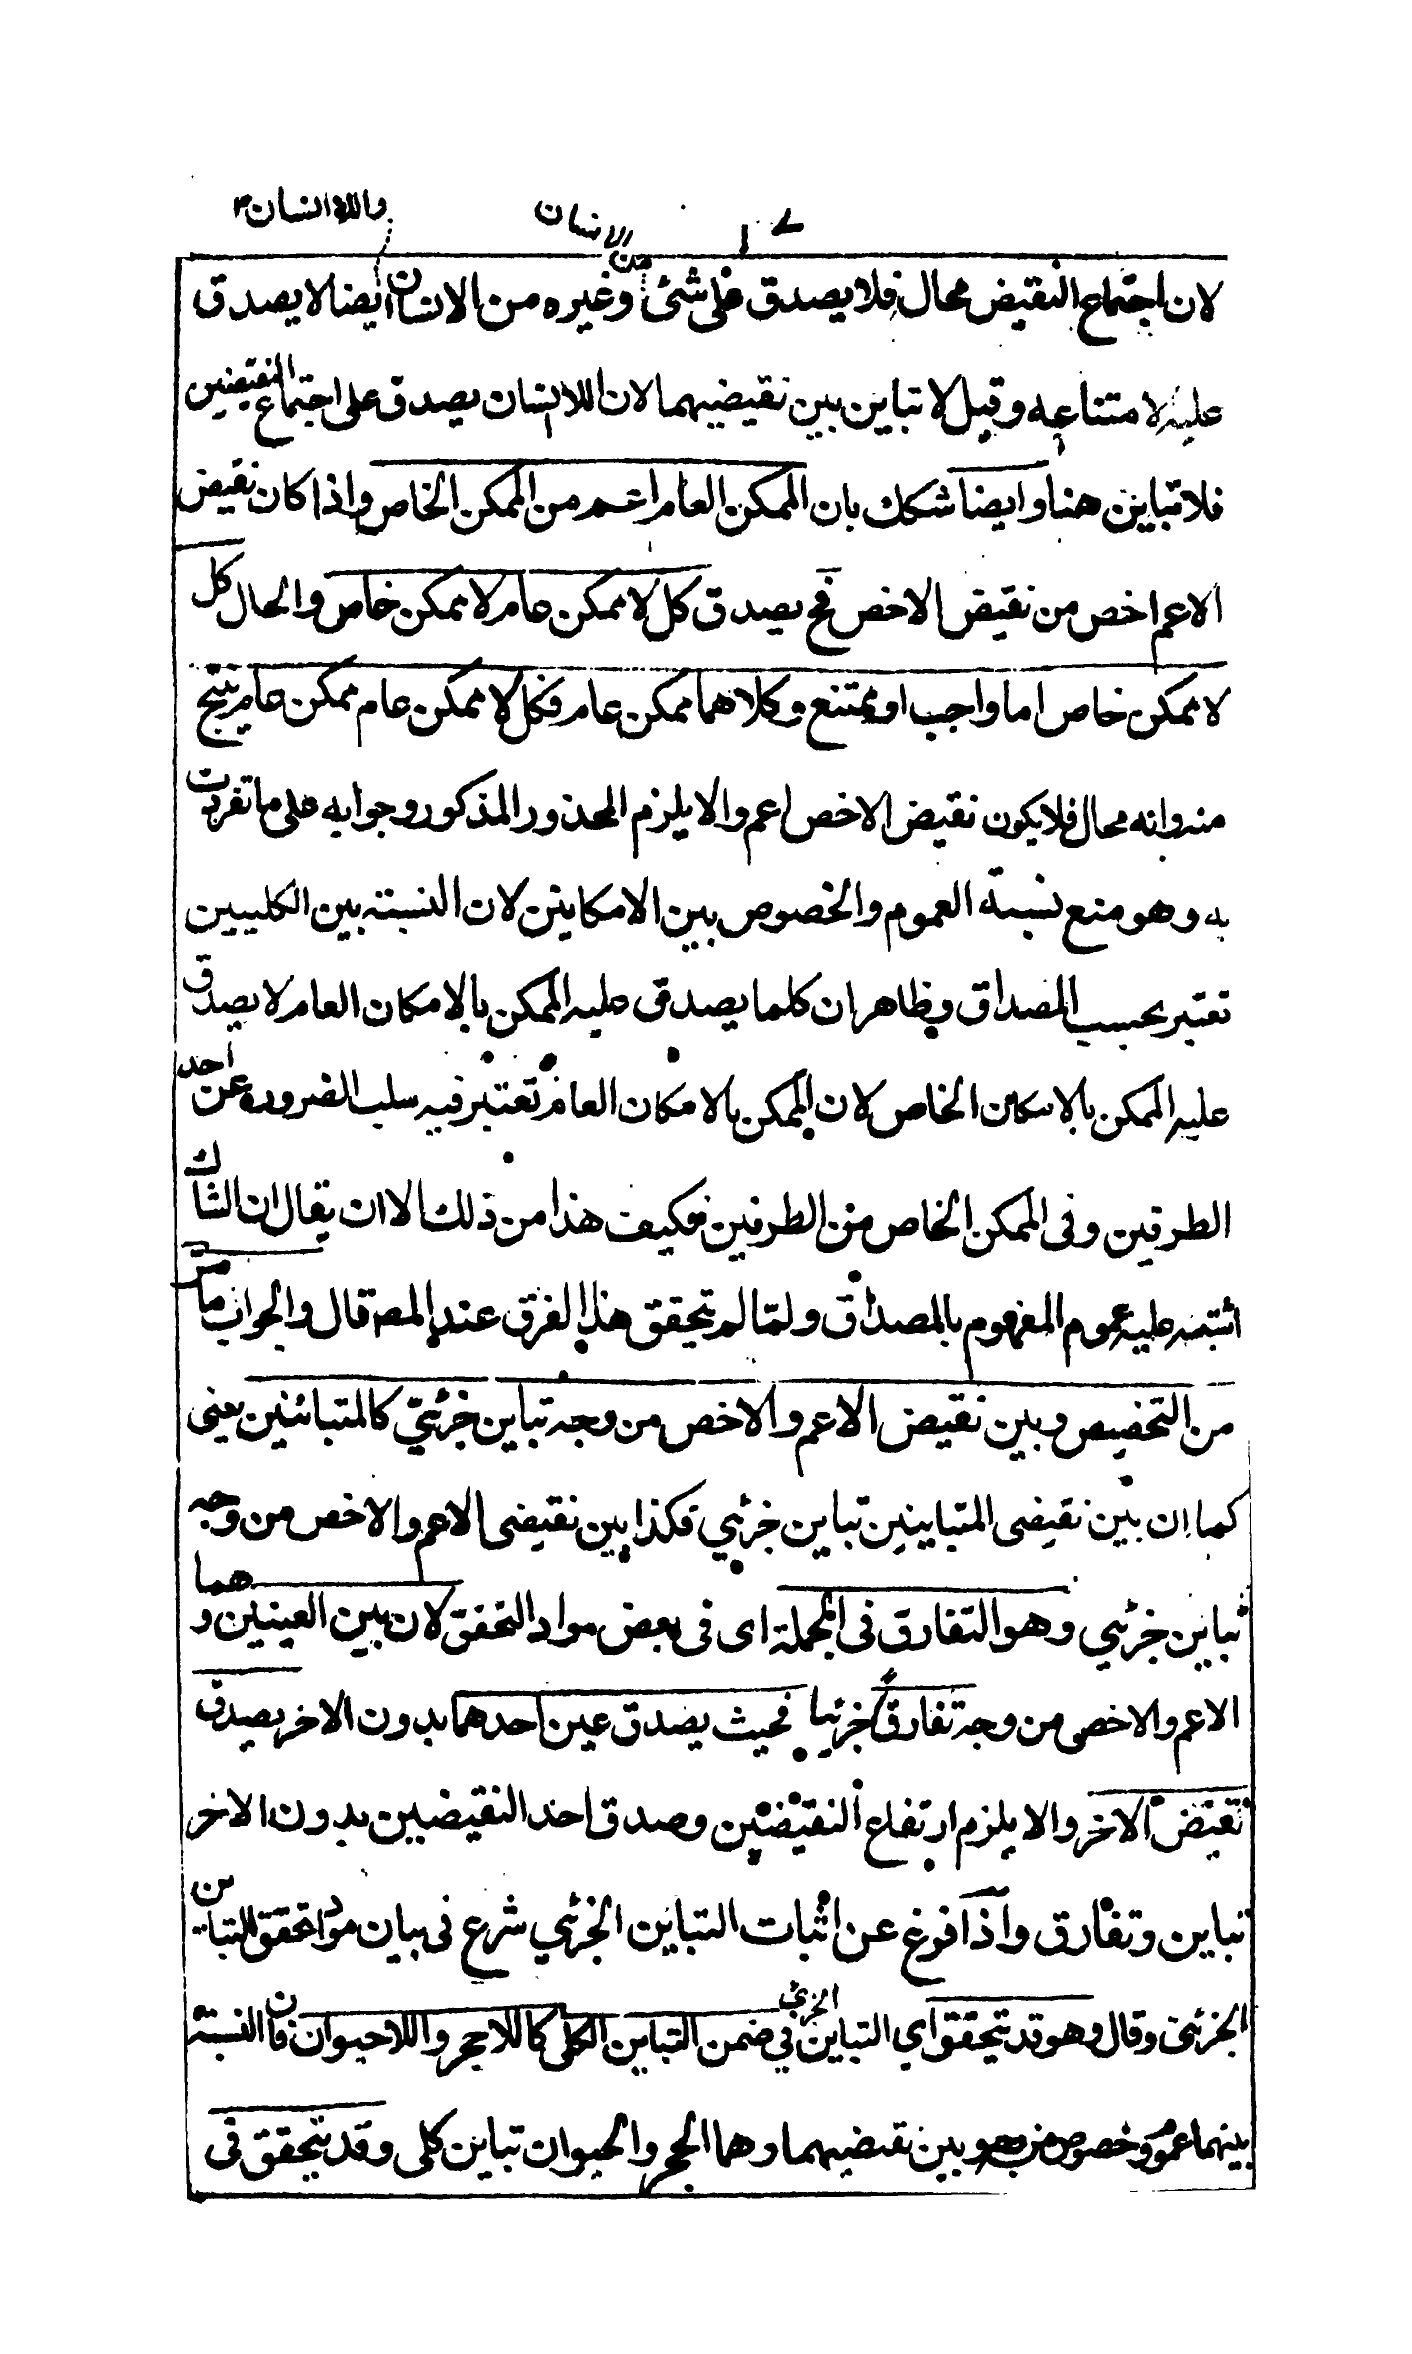 واللاانسان ٣
من الانسان
لان اجتماع النقيض محال فلا يصدق على شئ وغيره من الانسان ايضا لا يصدق
عليه لامتناعه وقيل لا تباين بين نقيضيهما لان اللاانسان يصدق على اجتماع النقيضين
فلا تباين هنا وايضا شكك بان الممكن العام اعم من الممكن الخاص واذا كان نقيض
الاعم اخص من نقيض الاخص فح يصدق كل لا ممكن عام لا ممكن خاص والحال كل
لا ممكن خاص اما واجب او ممتنع وكلاهما ممكن عام فكل لا ممكن عام ممكن عام ينتج
منه وانه محال فلا يكون نقيض الاخص اعم والا يلزم المحذور المذكور وجوابه على ما تفردت
به وهو منع نسبة العموم والخصوص بين الامكانين لان النسبته بين الكليين
تعتبر بحسب المصداق وظاهر ان كلما يصدق عليه الممكن بالامكان العام لا يصدق
عليه الممكن بالامكان الخاص لان الممكن بالامكان العام تعتبر فيه سلب الضرورة عن احد
الطرفين وفى الممكن الخاص من الطرفين فكيف هذا من ذلك الا ان يقال ان الشاك
اشتبه عليه عموم المفهوم بالمصداق ولما لم تحقق هذا الفرق عند المصـ قال والجواب ما مر
من التخصيص وبين نقيض الاعم والاخص من وجه تباين جزئيّ كالمتبائنين يعنى
كما ان بين نقيضى المتباينين تباين جزئي فكذا بين نقيضى الاعم والاخص من وجه
تباين جزئي وهو التفارق فى الجملة اى فى بعض مواد التحقق لان بين العينين وهما
الاعم والاخص من وجه تفارق جزئيا فحيث يصدق عين احدهما بدون الاخر يصدق
نقيض الاخر والا يلزم ارتفاع النقيضين وصدق احد النقيضين بدون الاخر
تباين وتفارق واذا فرغ عن اثبات التباين الجزئي شرع فى بيان مواد تحقق التباين
الجزئى وقال وهو قد يتحقق اي التباين الجزئي في ضمن التباين الكلى كاللاحجر واللاحيوان فان النسبة
بينهما عموم وخصوص من وجه وبين نقيضيهما وهما الحجر والحيوان تباين كلى وقد يتحقق فى